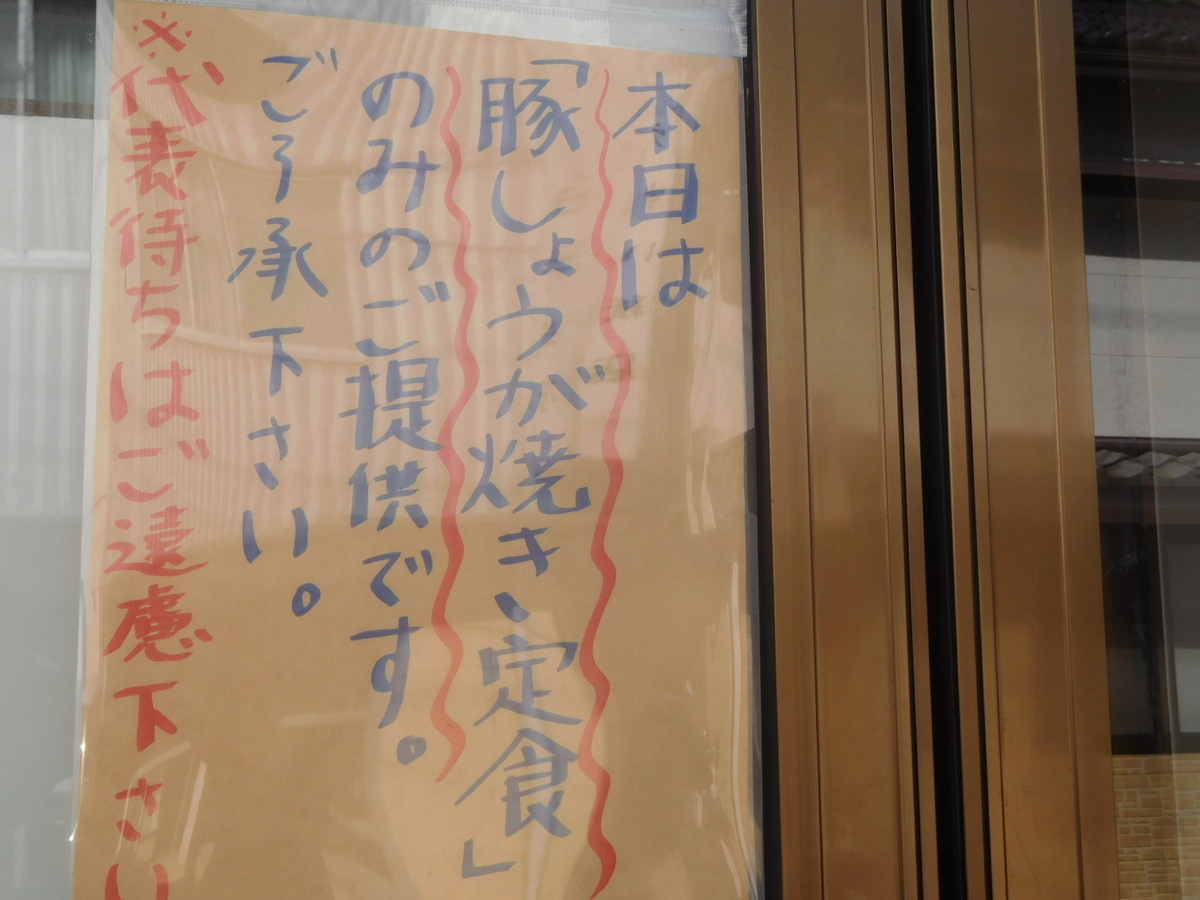 本日は
「豚しょうが焼き、定食」
のみのご提供です。
ごう承下さい。
※代表待ちはご遠慮下さい